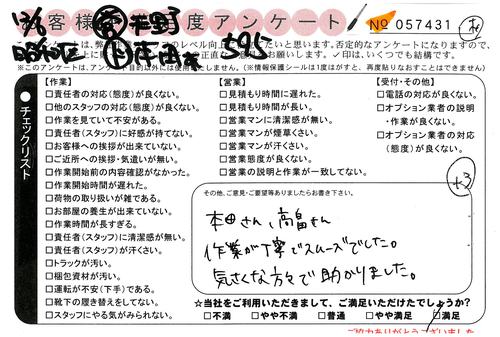 客様 度アンケート No 057431
12/6
平野
昭和区
本田
+0.5
のレベル向上に
ただいと思います。否定的なアンケートになりますので、
正直な
いします。✓印は、いくつでも結構です。
※このアンケートは、アンケート目的以外には使用致しません。(※情報保護シールは1度はがすと、再度貼りなおすことはできません)
チェックリスト
【作業】
□責任者の対応(態度)が良くない。
□他のスタッフの対応(態度)が良くない。
□作業を見ていて不安がある。
□責任者(スタッフ)に好感が持てない。
□お客様への挨拶が出来ていない。
□ご近所への挨拶・気遣いが無い。
□作業開始前の内容確認がなかった。
□作業開始時間が遅れた。
□荷物の取り扱いが雑である。
□お部屋の養生が出来ていない。
□作業時間が長すぎる。
□責任者(スタッフ)に清潔感が無い。
□責任者(スタッフ)が汗さい。
□トラックが汚い。
□梱包資材が汚い。
□運転が不安(下手)である。
□靴下の履き替えをしてない。
□スタッフにやる気がみられない。
【営業】
□見積もり時間に遅れた。
□見積もり時間が長い。
□営業マンに清潔感が無い。
□営業マンが煙草くさい。
□営業マンが汗さい。
□営業態度が良くない。
□営業の説明と作業が一致してない。
【受付・その他】
□電話の対応が良くない。
□オプション業者の説明
・作業が良くない。
□オプション業者の対応
(態度)が良くない。
+3
その他、ご意見・ご要望等ありましたらお書き下さい。
本田さん、高畠さん
作業が丁寧でスムーズでした。
気さくな方々で助かりました。
☆当社をご利用いただきまして、ご満足いただけたでしょうか?
□不満 □やや不満 □普通 □やや満足 ☑満足
ご協力ありがとうございました